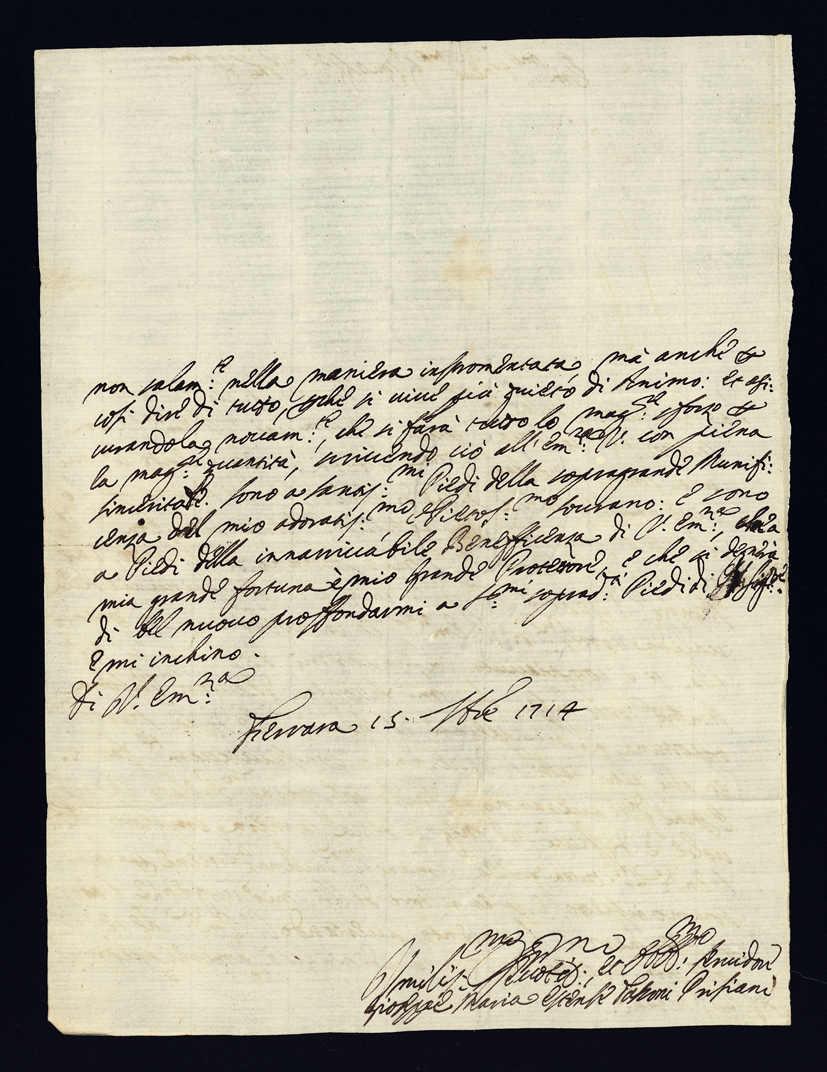 non solam:te nella maniera insromentata, mà anche &
così dire di tutto, perche si vive più quieto di Animo: et assi:
curandola novam:te, che si farà tutto lo mag:re sforzo &
la mag:re quantità, scrivendo ciò all'Em:za V. con piena
sincerità. Sono a santis:mi Piedi della sopragrande Munifi:
cenza del mio adoratis:mo Pietos:mo sovrano: e sono
a Piedi della innarivabile Beneficenza di V. Em:za,
mia grande fortuna è mio grande Protettore, e che si degnerà
di bel nuovo proffondarmi a S:mi soprad:ti Piedi di
e mi inchino.
Di V. Em:za
Ferrara 15. 1714
Umilis:mo Devot: et Obb:mo Servidor
Gioseppe Maria Estense Tassoni Prisciani